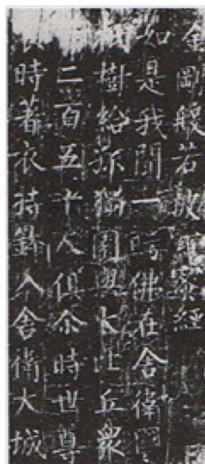 金剛般若波羅蜜經
如是我聞一時佛在舍衛國
樹給孤獨園與大比丘衆
二百五十人俱尒時世尊
時著衣持鉢入舍衛大城